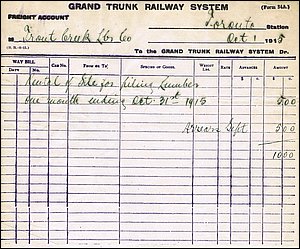 GRAND TRUNK RAILWAY SYSTEM (Form 34A.)
FREIGHT ACCOUNT
Toronto Station
Oct 1 1915
M Trout Creek Lbr Co
To the GRAND TRUNK RAILWAY SYSTEM Dr.
WAY BILL CAR NO. FROM OR TO SPECIES OF GOODS. WEIGHT LBS. RATE ADVANCES AMOUNT
DATE NO. $ $
Rental of Site for piling Lumber
one month ending Oct. 31st 1915 500
Arrears Sept 500
1000